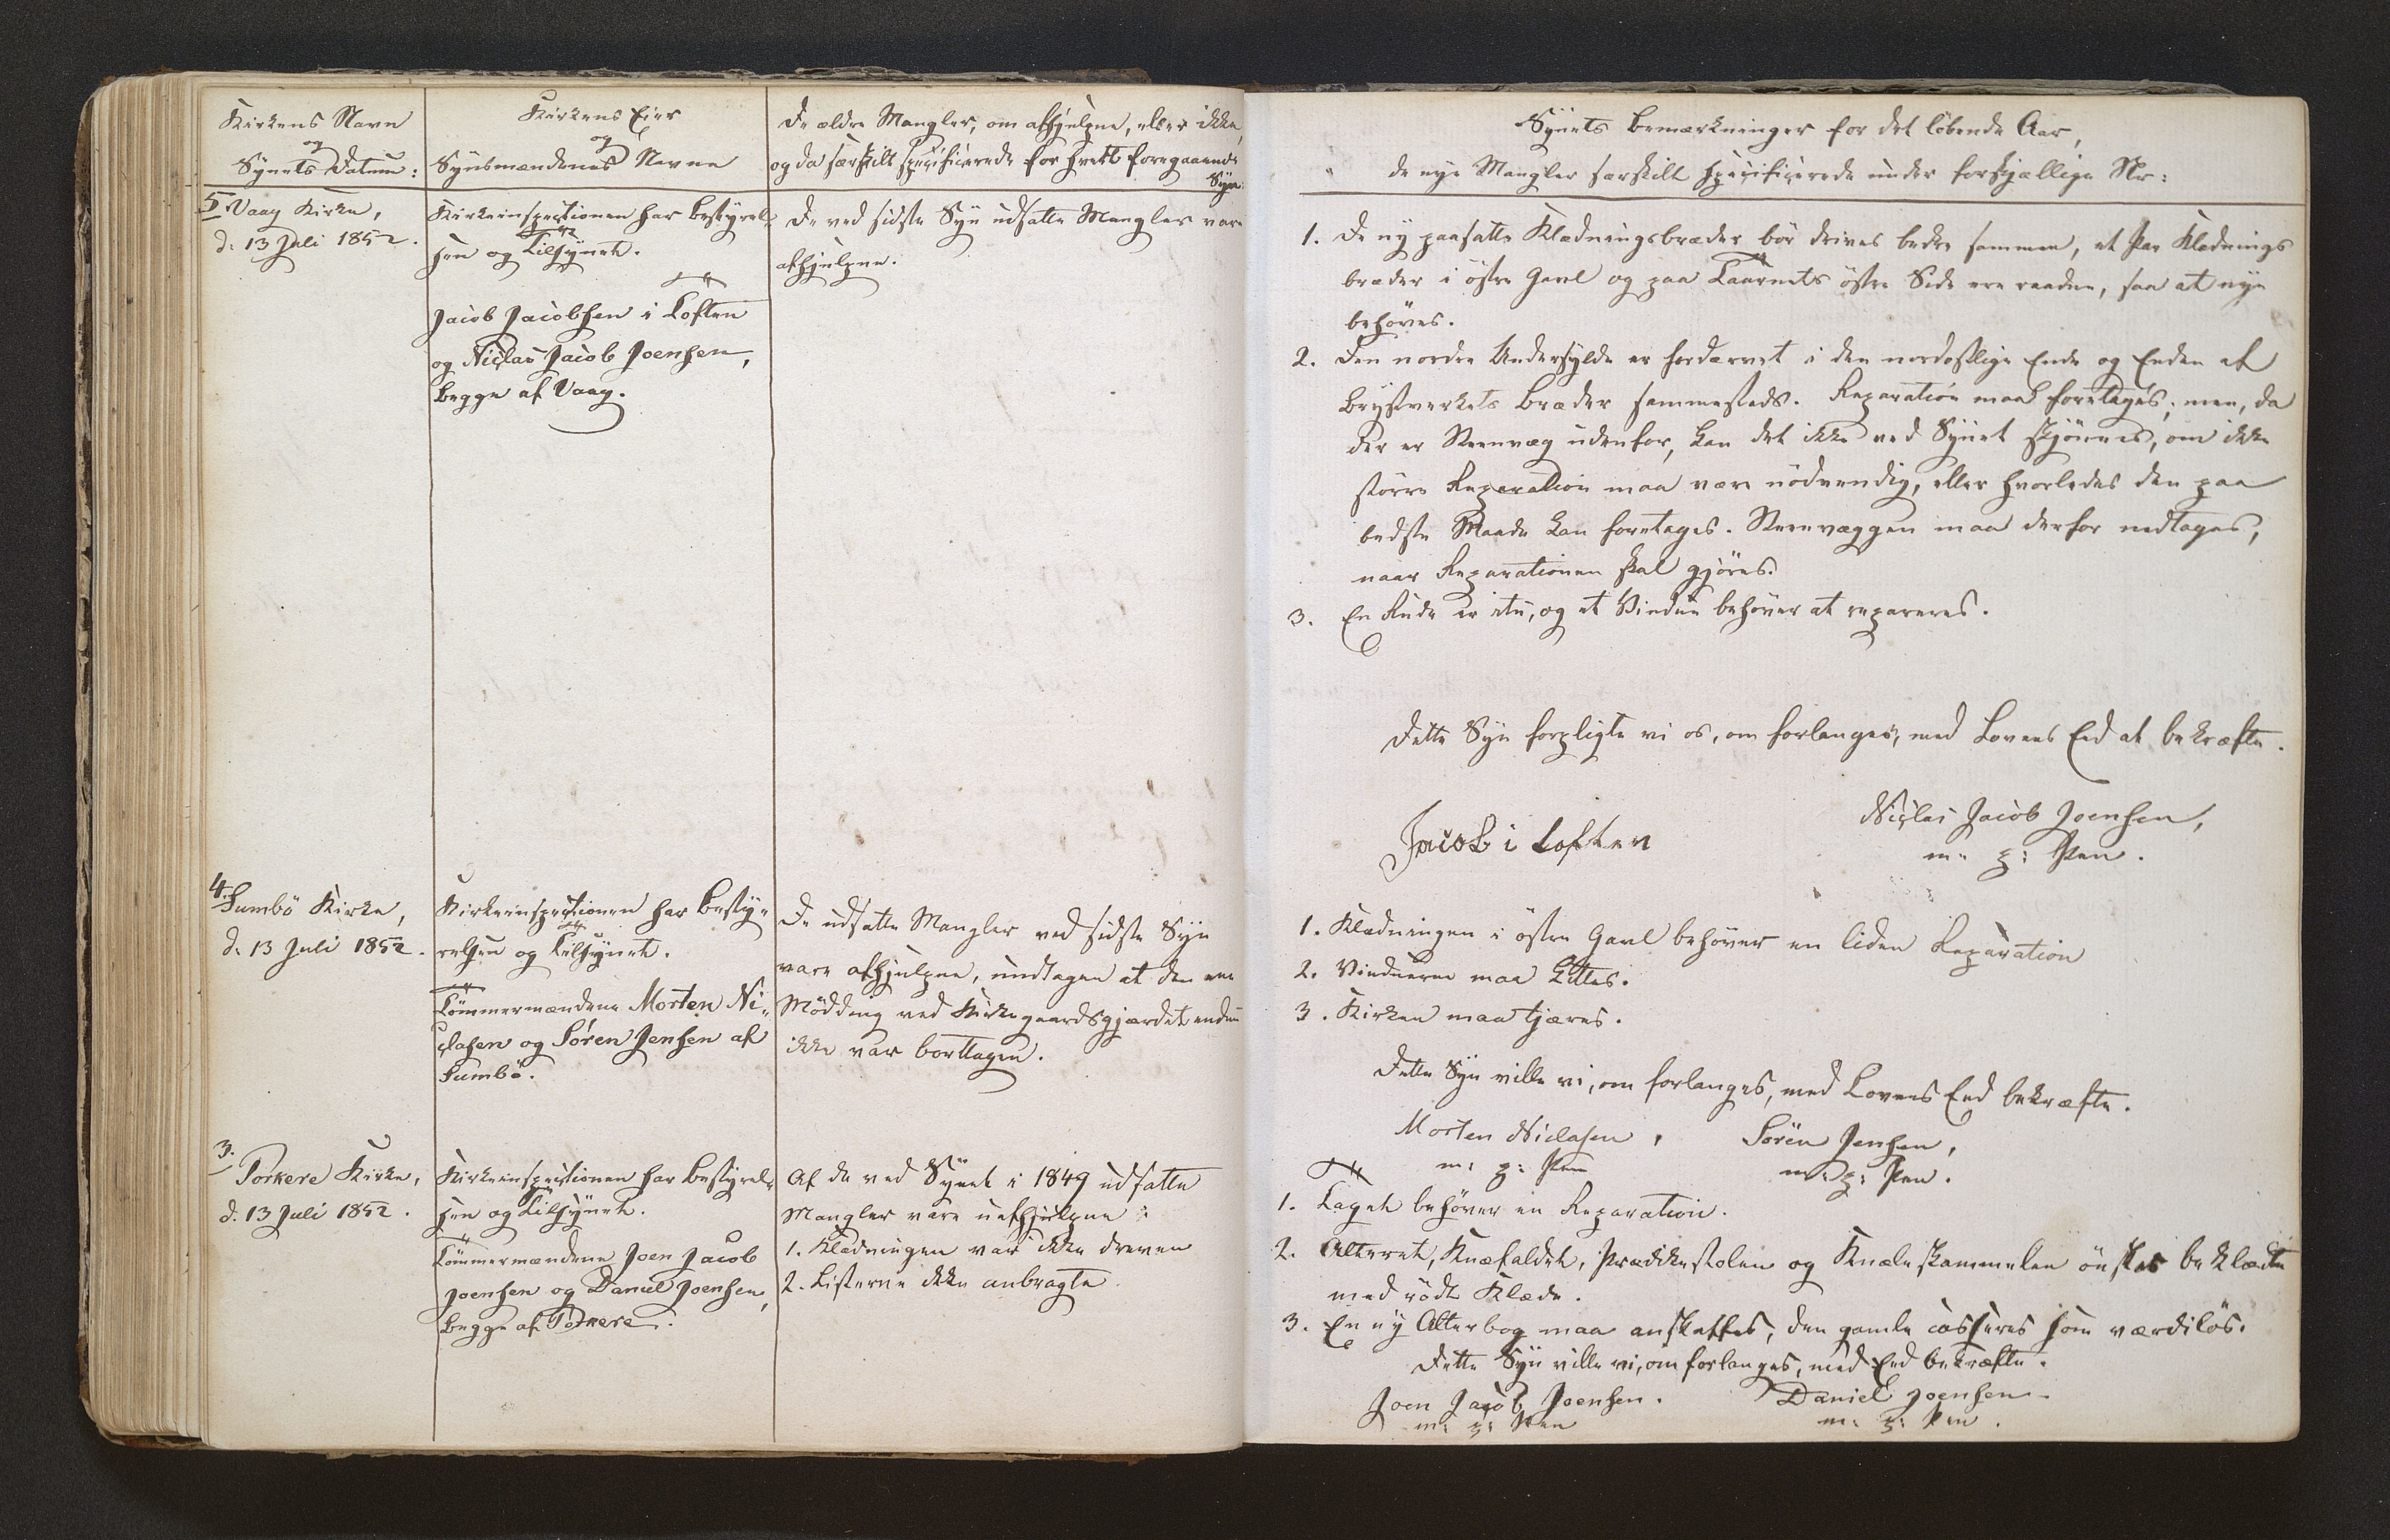 Kirkens Navn
og
Synets Datum:
Kirkens Eier
og
Synsmændenes Navne
De ældre Mangler, om afhjulpne, eller ikke,
og da særskilt specificerede for hvert foregaaende
Syn:
5 Vaag Kirke,
d: 13 Juli 1852.
Kirkeinspectionen har Bestyrel-
sen og Tilsynet.
Jacob Jacobsen i Toften
og Niclas Jacob Joensen,
begge af Vaag.
De ved sidste Syn udsatte Mangler vare
afhjulpne.
4. Sumbö Kirke,
d: 13 Juli 1852.
Kirkeinspectionen har Besty-
relsen og Tilsynet.
Tömmermændene Morten Ni-
clasen og Sören Jensen af
Sumbö.
De udsatte Mangler ved sidste Syn
vare afhjulpne, undtagen at den ene
Mödding ved Kirkegaardsgjærdet endnu
ikke var borttagen.
3.
Porkere Kirke,
d. 13 Juli 1852.
Kirkeinspectionen har Bestyrel-
sen og Tilsynet.
Tömmermændene Joen Jacob
Joensen og Daniel Joensen,
begge af Porkere.
Af de ved Synet i 1849 udsatte
Mangler vare uafhjulpne:
1. Klædningen var ikke dreven
2. Listerne ikke anbragte
Synets Bemærkninger for det löbende Aar,
de nye Mangler særskilt specificerede under forskjællige Nr:
1. De ny paasatte Klædningsbræder bör drives bedre sammen, et Par Klædnings
bræder i östre Gavl og paa Taarnets östre Side ere raadne, saa at nye
behöves.
2. Den nordre Undersylde er fordærvet i den nordostlige Ende og Enden af
Brystverkets Bræder sammesteds. Reparation maa foretages; men, da
der er Steenvæg udenfor, kan det ikke ved Synet skjönnes, om ikke
större Reparation maa være nödvendig, eller hvorledes den paa
bedste Maade kan foretages. Steenvæggen maa derfor nedtages,
naar Reparationen skal gjöres.
3. En Rude er itu, og et Vindue behöver at repareres.
Dette Syn forpligte vi os, om forlanges, med Lovens Eed at bekræfte.
Jacob i Toften
Niclas Jacob Joensen,
m: p: Pen.
1. Klædningen i östre Gavl behöver en liden Reparation
2. Vinduerne maa kittes.
3. Kirken maa tjæres.
Dette Syn ville vi, om forlanges, med Lovens Eed bekræfte.
Morten Niclasen,
m: p: Pen
Sören Jensen,
m: p: Pen.
1. Taget behöver en Reparation.
2. Alteret, Knæfaldet, Prædikestolen og Knæleskammelen önskes beklædte
med rödt Klæde.
3. En ny Alterbog maa anskaffes, den gamle casseres som værdilös.
Dette Syn ville vi, om forlanges, med Eed bekræfte.
Joen Jacob Joensen.
m: p: Pen
Daniel Joensen
m: p: Pen.